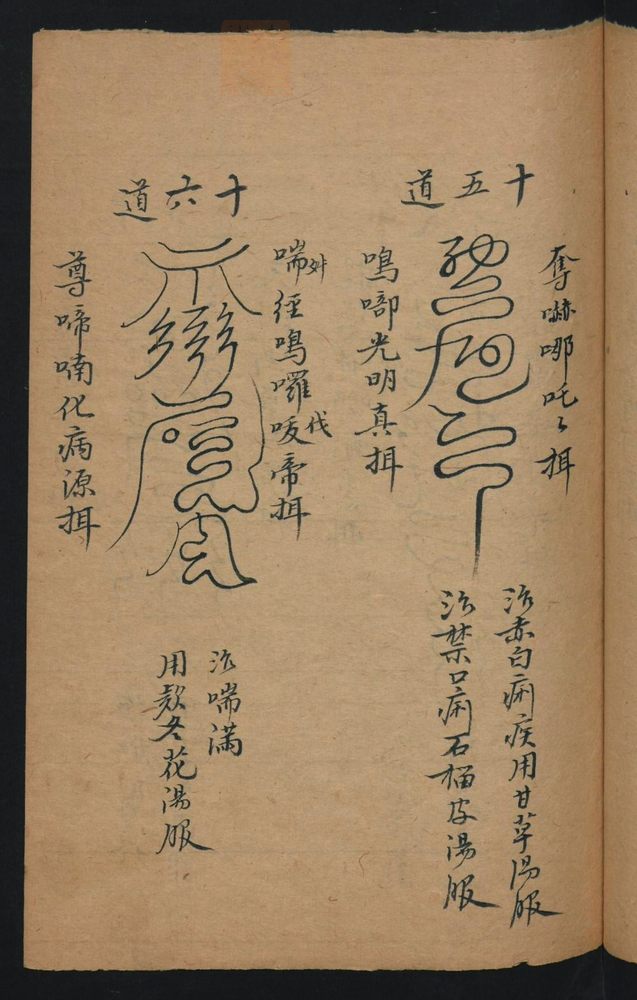 十五道
奪嚇哪吒〻揖
鳴㗙光明真揖
治赤白痢疾用甘草湯服
治禁口痢石榴皮湯服
十六道
喘 徑鳴囉 帝揖
代
尊啼喃化病源揖
治喘满
用款冬花湯服